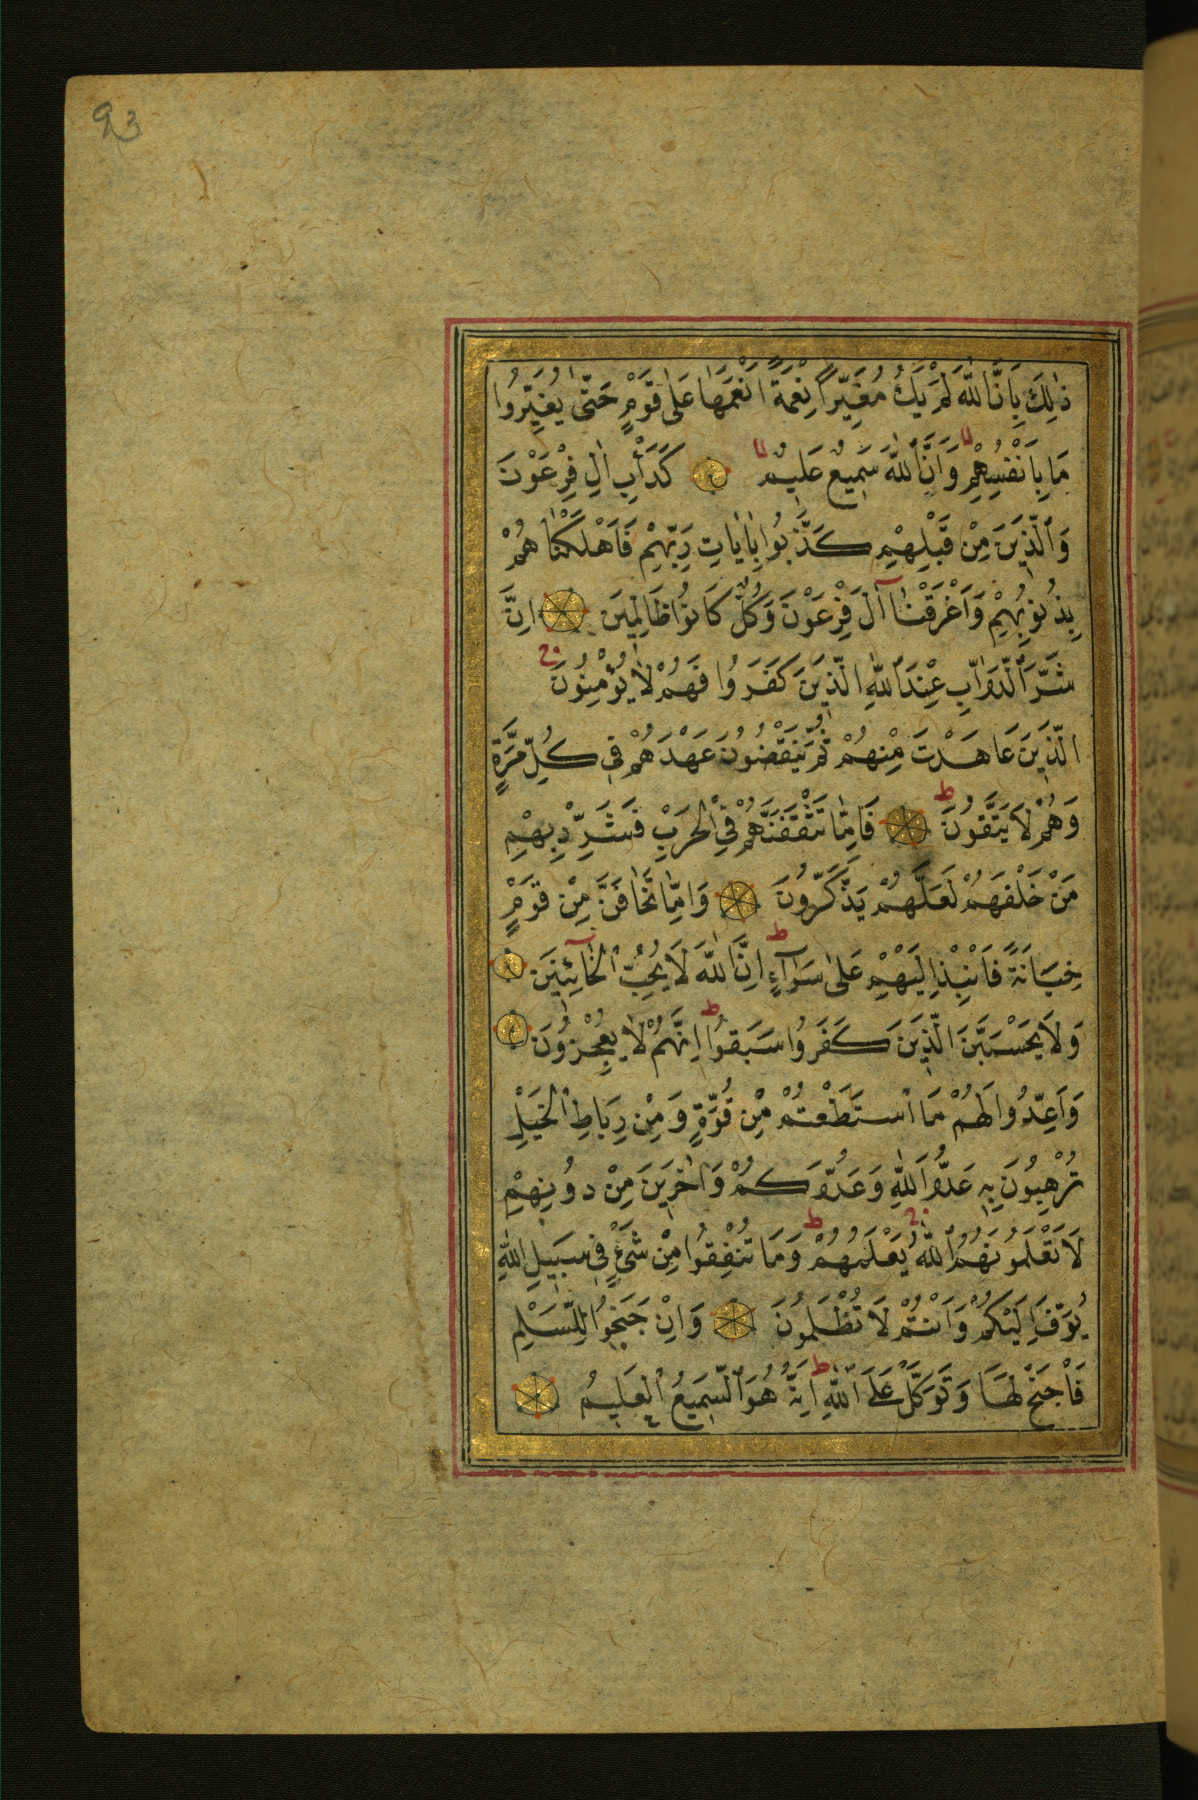 93
ذٰلِكَ بِاَنَّ اللّٰهَ لَمْ يَكُ مُغَيِّرًا نِعْمَةً اَنْعَمَهَا عَلٰى قَوْمٍ حَتّٰى يُغَيِّرُوا
مَا بِاَنْفُسِهِمْ وَاَنَّ اللّٰهَ سَمِيعٌ عَلِيمٌ كَدَأْبِ اٰلِ فِرْعَوْنَ
وَالَّذِينَ مِنْ قَبْلِهِمْ كَذَّبُوا بِاٰيَاتِ رَبِّهِمْ فَاَهْلَكْنَاهُمْ
بِذُنُوبِهِمْ وَاَغْرَقْنَا آلَ فِرْعَوْنَ وَكُلٌّ كَانُوا ظَالِمِينَ اِنَّ
شَرَّ الدَّوَابِّ عِنْدَ اللّٰهِ الَّذِينَ كَفَرُوا فَهُمْ لَا يُؤْمِنُونَ
الَّذِينَ عَاهَدْتَ مِنْهُمْ ثُمَّ يَنْقُضُونَ عَهْدَهُمْ فِي كُلِّ مَرَّةٍ
وَهُمْ لَا يَتَّقُونَ ط فَاِمَّا تَثْقَفَنَّهُمْ فِي الْحَرْبِ فَشَرِّدْ بِهِمْ
مَنْ خَلْفَهُمْ لَعَلَّهُمْ يَذَّكَّرُونَ وَاِمَّا تَخَافَنَّ مِنْ قَوْمٍ
خِيَانَةً فَانْبِذْ اِلَيْهِمْ عَلٰى سَوَآءٍ ط اِنَّ اللّٰهَ لَا يُحِبُّ الْخَآئِنِينَ
وَلَا يَحْسَبَنَّ الَّذِينَ كَفَرُوا سَبَقُوا ط اِنَّهُمْ لَا يُعْجِزُونَ
وَاَعِدُّوا لَهُمْ مَا اسْتَطَعْتُمْ مِنْ قُوَّةٍ وَمِنْ رِبَاطِ الْخَيْلِ
تُرْهِبُونَ بِهِ عَدُوَّ اللّٰهِ وَعَدُوَّكُمْ وَاٰخَرِينَ مِنْ دُونِهِمْ
لَا تَعْلَمُونَهُمُ اللّٰهُ يَعْلَمُهُمْ ط وَمَا تُنْفِقُوا مِنْ شَيْءٍ فِي سَبِيلِ اللّٰهِ
يُوَفَّ اِلَيْكُمْ وَاَنْتُمْ لَا تُظْلَمُونَ وَاِنْ جَنَحُوا لِلسَّلْمِ
فَاجْنَحْ لَهَا وَتَوَكَّلْ عَلَى اللّٰهِ ط اِنَّهُ هُوَ السَّمِيعُ الْعَلِيمُ